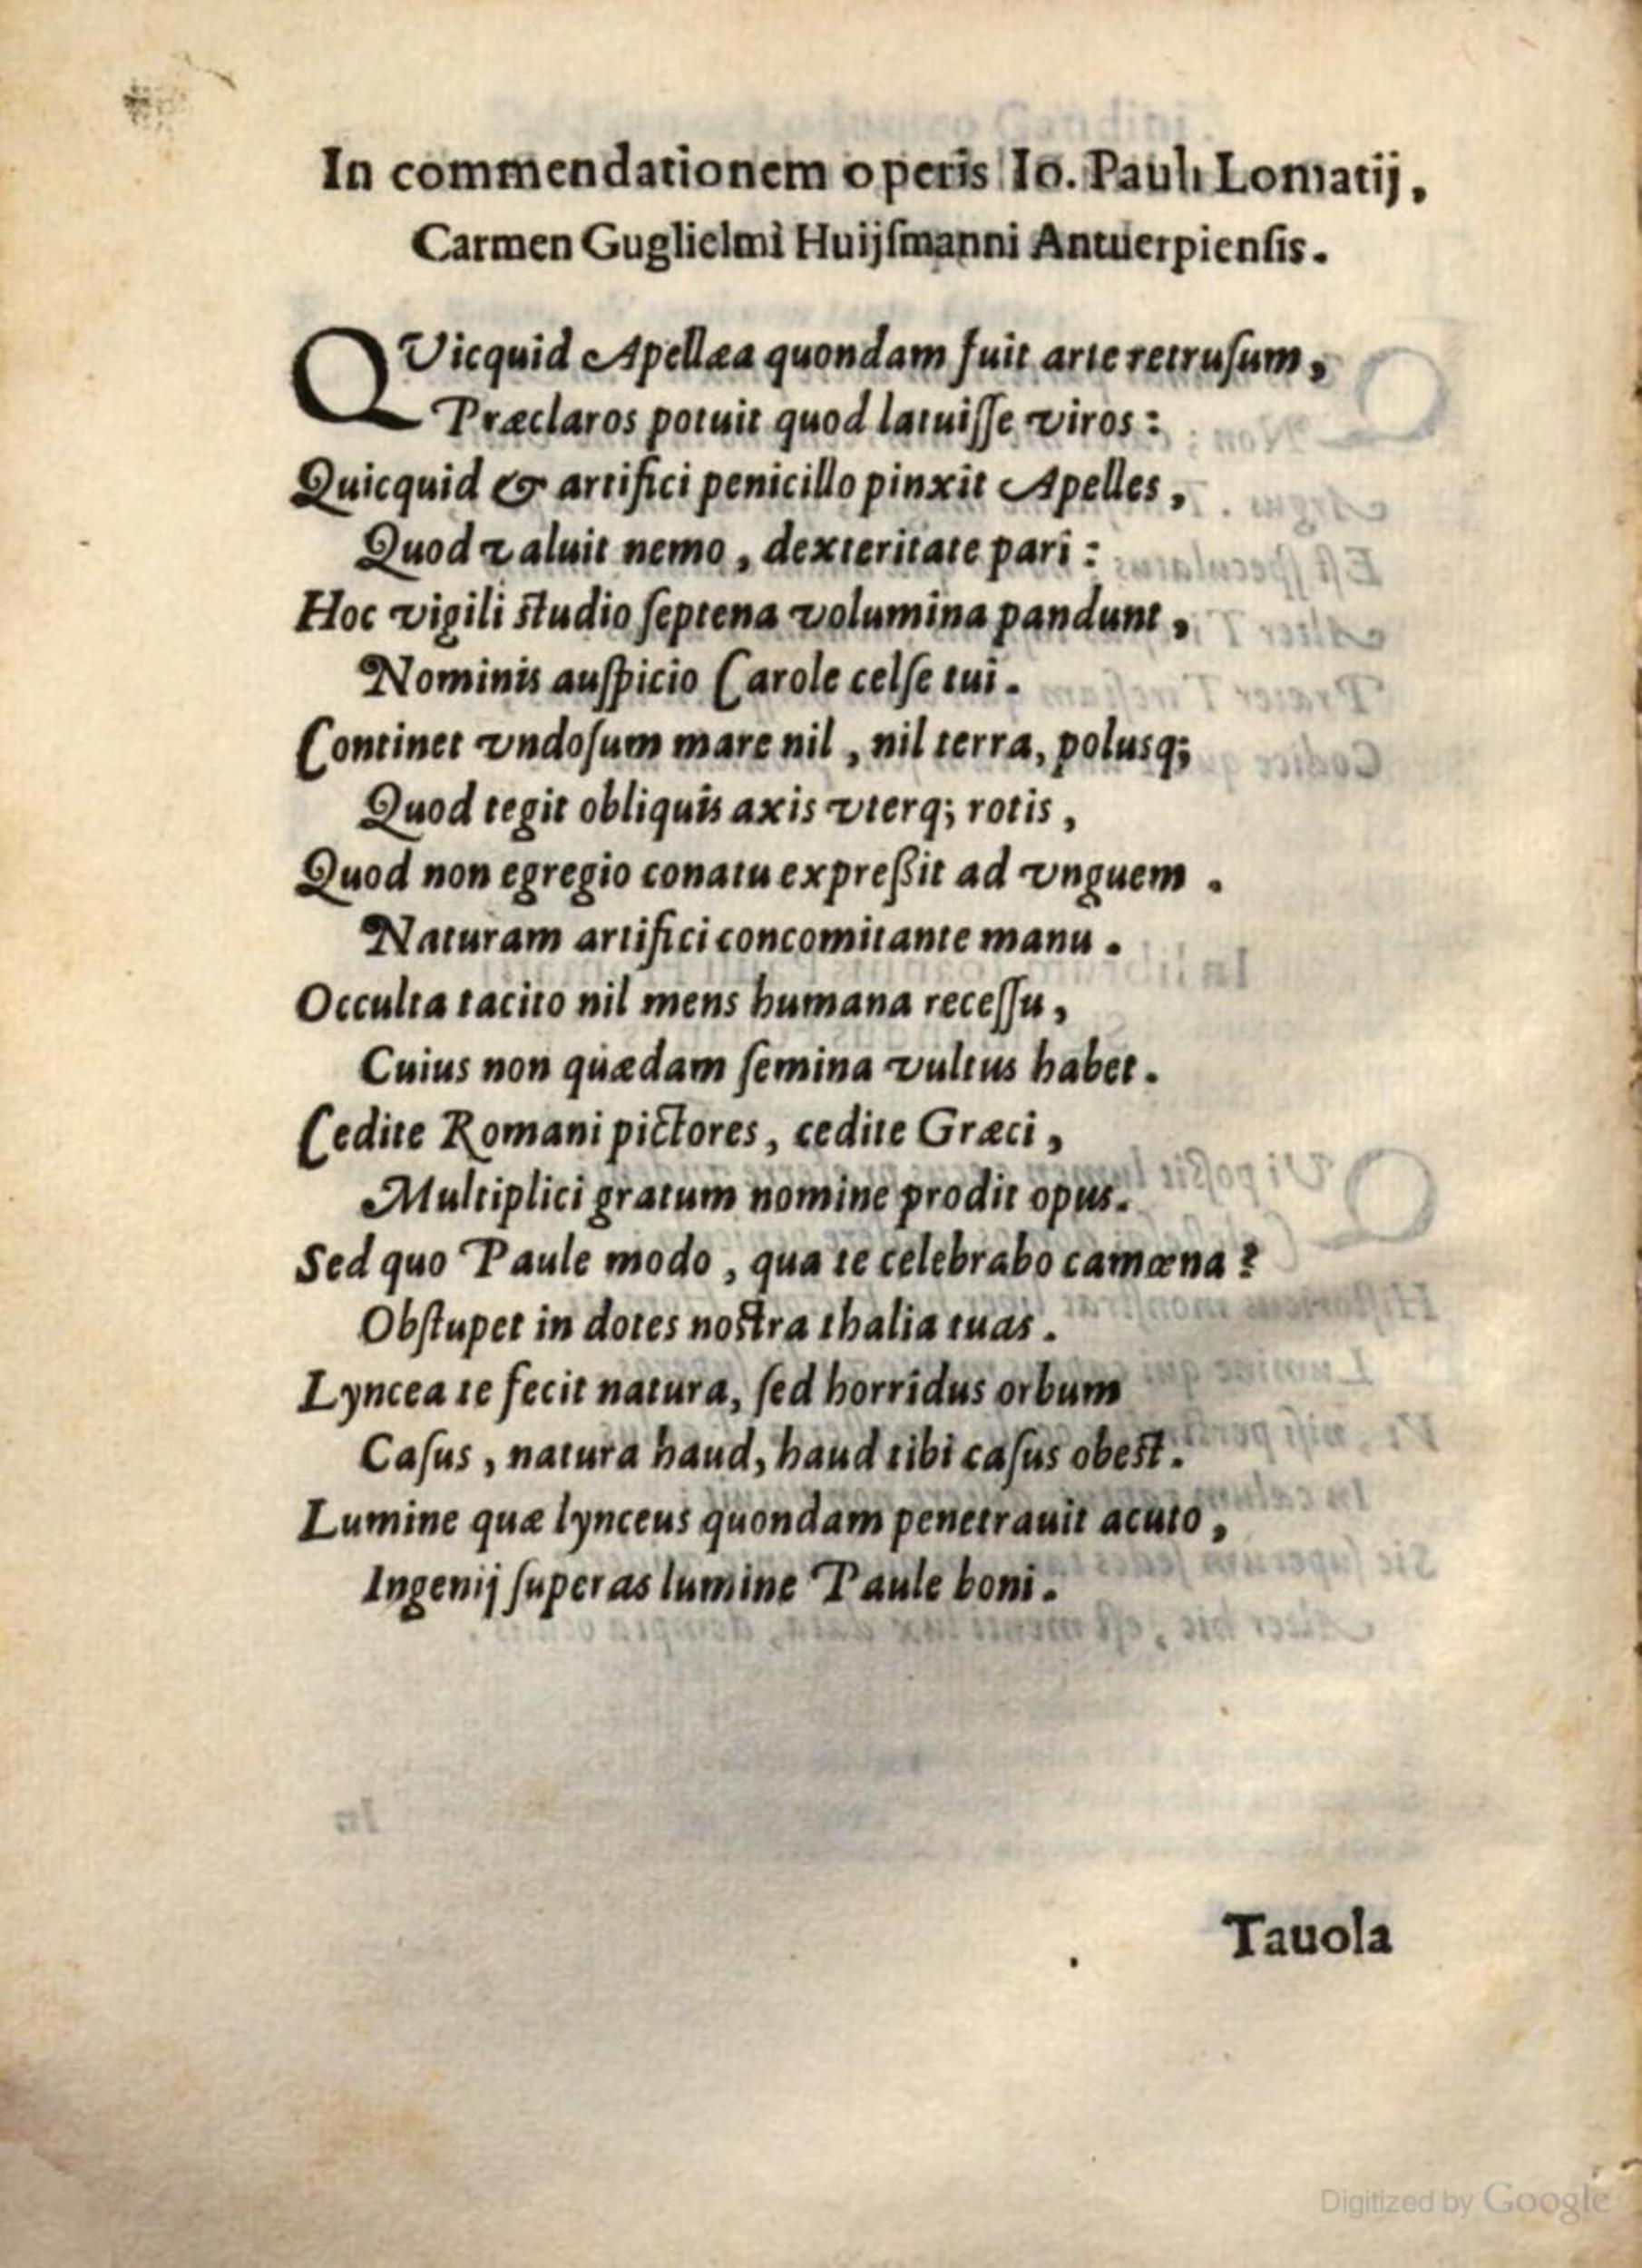 In commendationem operis Io. Pauli Lomatij,
Carmen Guglielmi Huijſmanni Antuerpienſis.
QVicquid Apellæa quondam fuit arte retruſum,
Præclaros potuit quod latuiſſe viros:
Quicquid & artifici penicillo pinxit Apelles,
Quod valuit nemo, dexteritate pari:
Hoc vigili ſtudio ſeptena volumina pandunt,
Nominis auſpicio Carole celſe tui.
Continet vndoſum mare nil, nil terra, polusq;
Quod tegit obliquis axis vterq; rotis,
Quod non egregio conatu expreßit ad vnguem.
Naturam artifici concomitante manu.
Occulta tacito nil mens humana receſſu,
Cuius non quædam ſemina vultus habet.
Cedite Romani pictores, cedite Græci,
Multiplici gratum nomine prodit opus.
Sed quo Paule modo, qua te celebrabo camœna?
Obſtupet in dotes noſtra thalia tuas.
Lyncea te fecit natura, ſed horridus orbum
Caſus, natura haud, haud tibi caſus obeſt.
Lumine quæ lynceus quondam penetrauit acuto,
Ingenij ſuperas lumine Paule boni.
Tauola
Digitized by Google